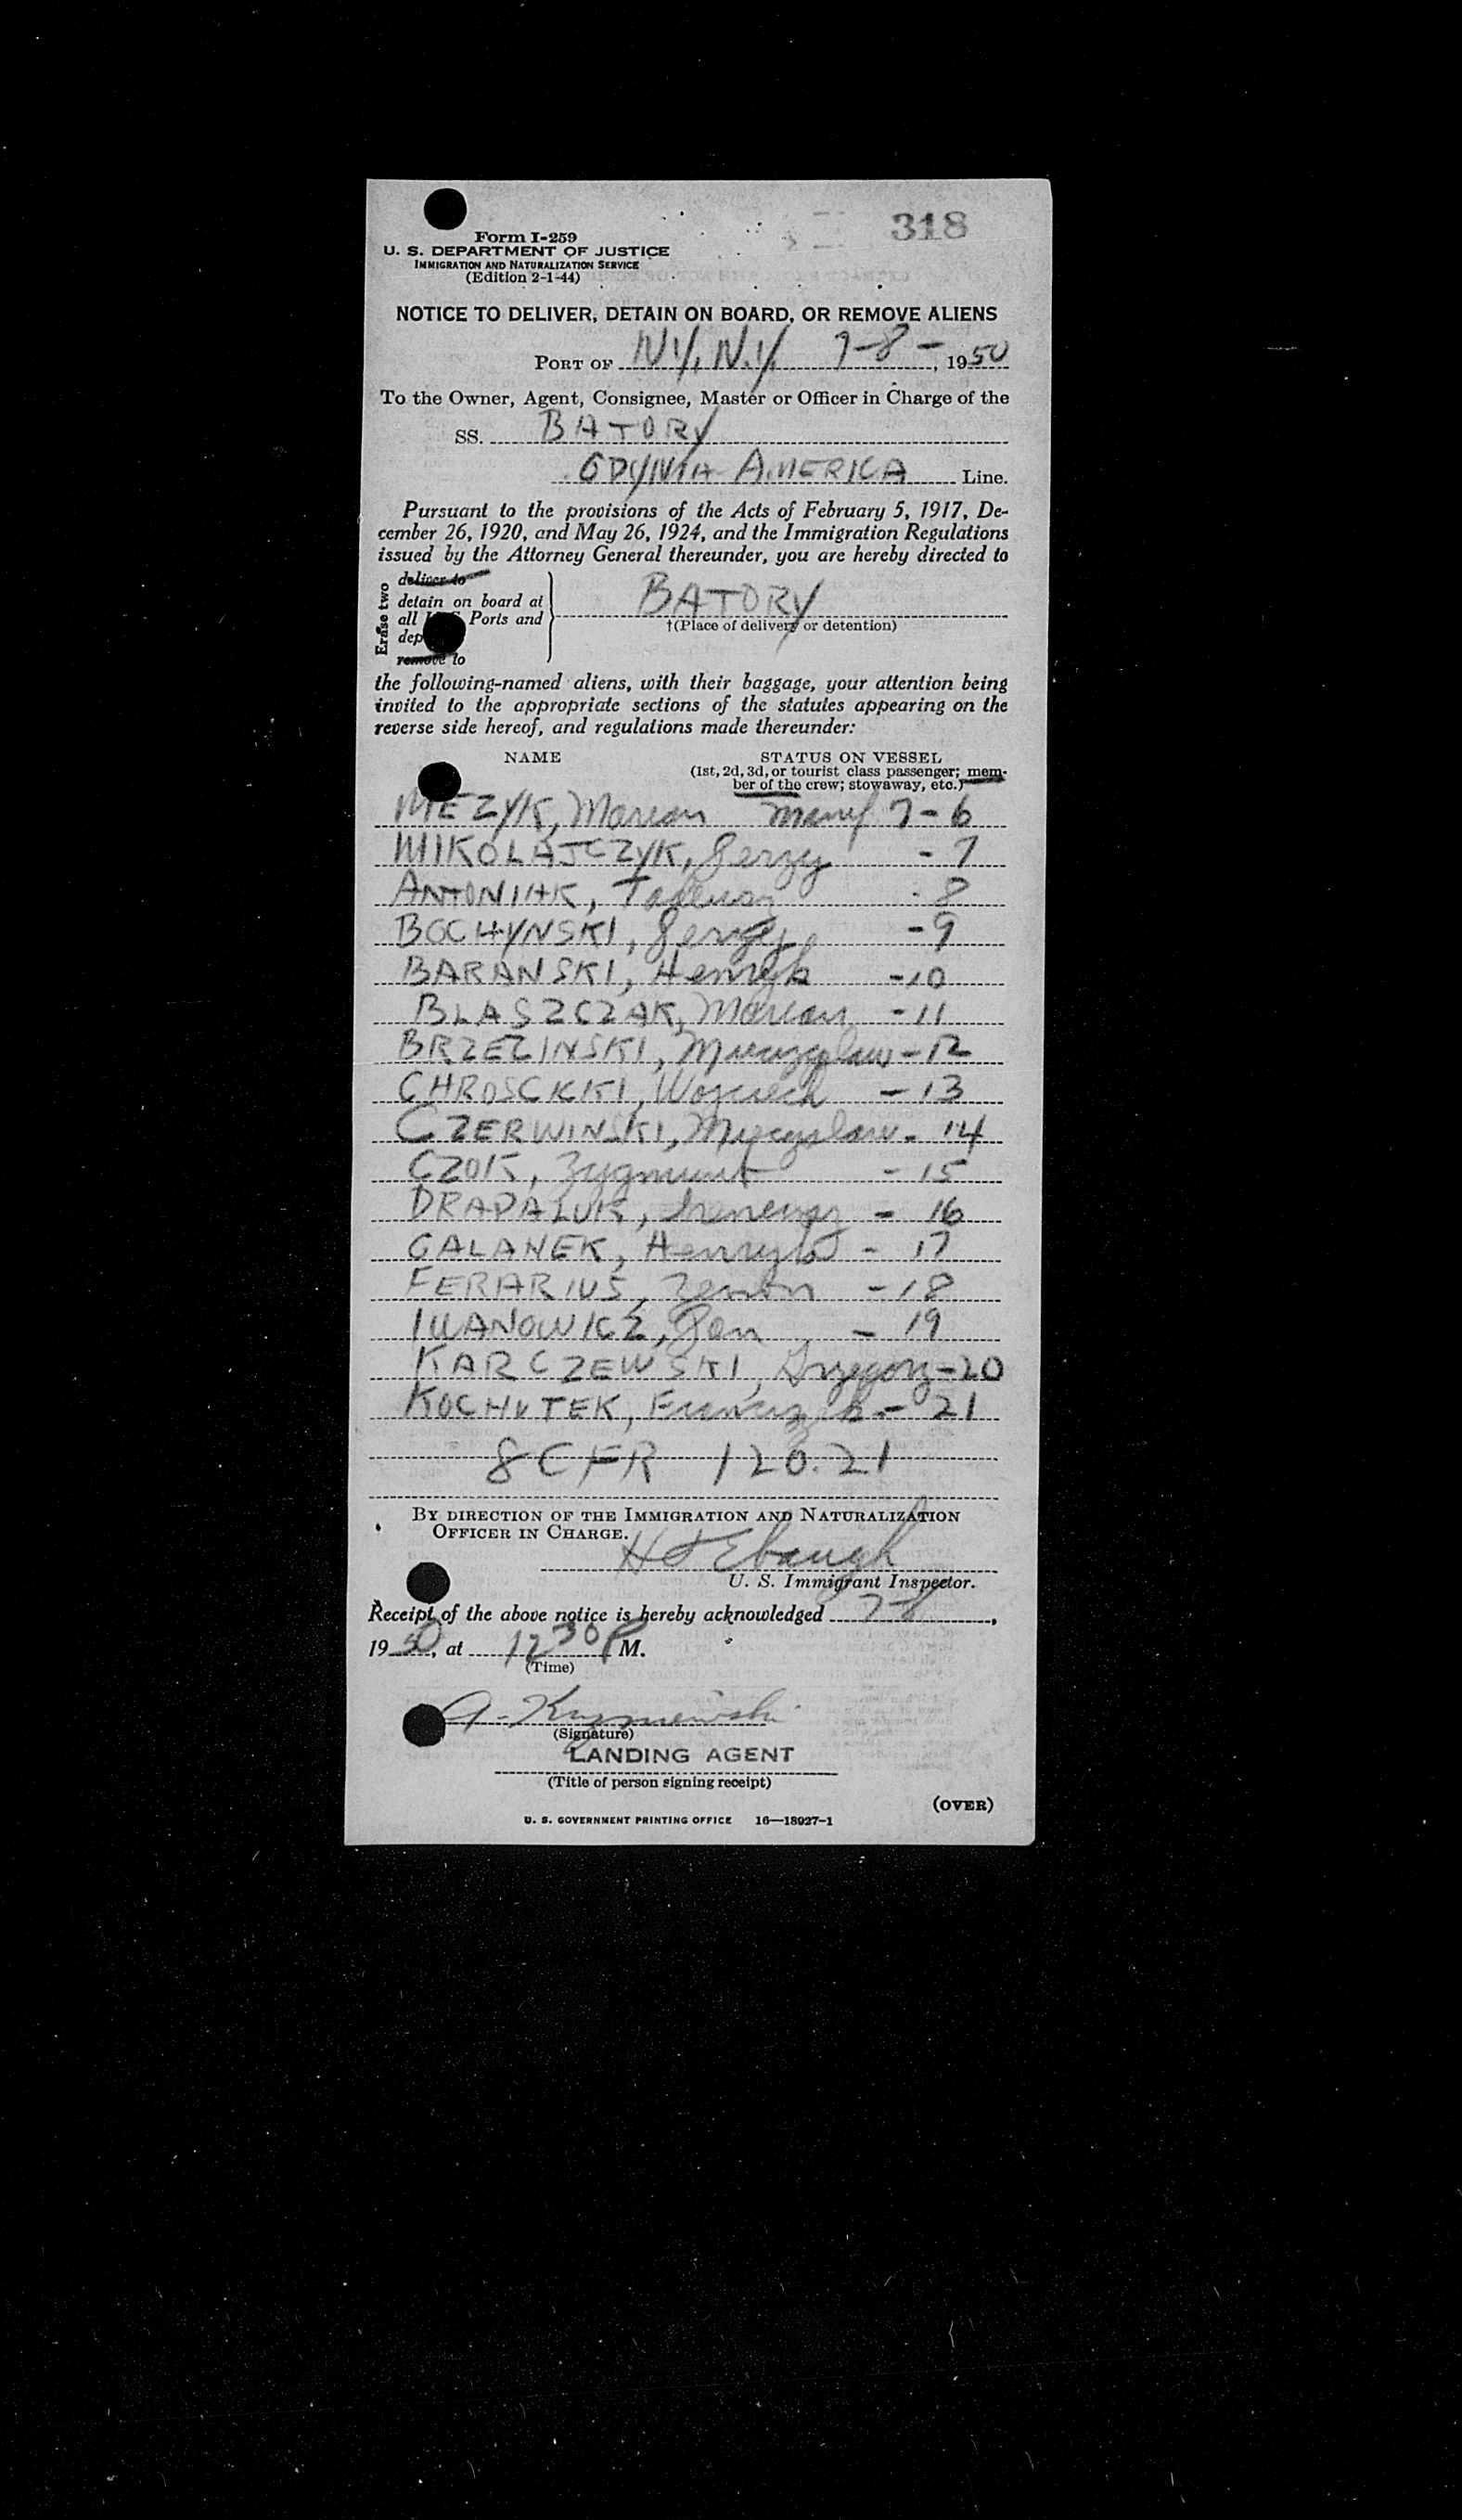 318
Form I-259
U. S. DEPARTMENT OF JUSTICE
IMMIGRATION AND NATURALIZATION SERVICE
(Edition 2-1-44)
NOTICE TO DELIVER, DETAIN ON BOARD, OR REMOVE ALIENS
PORT OF N.Y, N.Y. 7-8-, 1950
To the Owner, Agent, Consignee, Master or Officer in Charge of the
SS. BATORY
GDYNIA AMERICA Line.
Pursuant to the provisions of the Acts of February 5, 1917, De-
cember 26, 1920, and May 26, 1924, and the Immigration Regulations
issued by the Attorney General thereunder, you are hereby directed to
Erase two
deliver to
detain on board at
all Ports and
dep
remove to
BATORY
†(Place of delivery or detention)
the following-named aliens, with their baggage, your attention being
invited to the appropriate sections of the statutes appearing on the
reverse side hereof, and regulations made thereunder:
NAME STATUS ON VESSEL
(1st, 2d, 3d, or tourist class passenger; mem-
ber of the crew; stowaway, etc.)
MEZYK, Marian Manf 7-6
MIKOLAJCZYK, Jerzy - 7
ANTONIAK, Tadeusz - 8
BOCHYNSKI, Jerzy - 9
BARANSKI, Henryk - 10
BLASZCZAK, Marian - 11
BRZEZINSKI, Mieczyslaw - 12
CHROSCKIKI, Wojciech - 13
CZERWINSKI, Mieczyslaw - 14
CZOK, Zygmunt - 15
DRAPALUK, Ireneusz - 16
GALANEK, Henryk - 17
FERARIUS, Zenon - 18
IWANOWICZ, Jan - 19
KARCZEWSKI, Grzegorz - 20
KOCHUTEK, - 21
8 CFR 120.21
BY DIRECTION OF THE IMMIGRATION AND NATURALIZATION
OFFICER IN CHARGE.
H J Ebaugh
U. S. Immigrant Inspector.
Receipt of the above notice is hereby acknowledged 7-8,
1950, at 12 30 P M.
(Time)
A.
(Signature)
LANDING AGENT
(Title of person signing receipt)
(OVER)
U. S. GOVERNMENT PRINTING OFFICE 16—18927-1